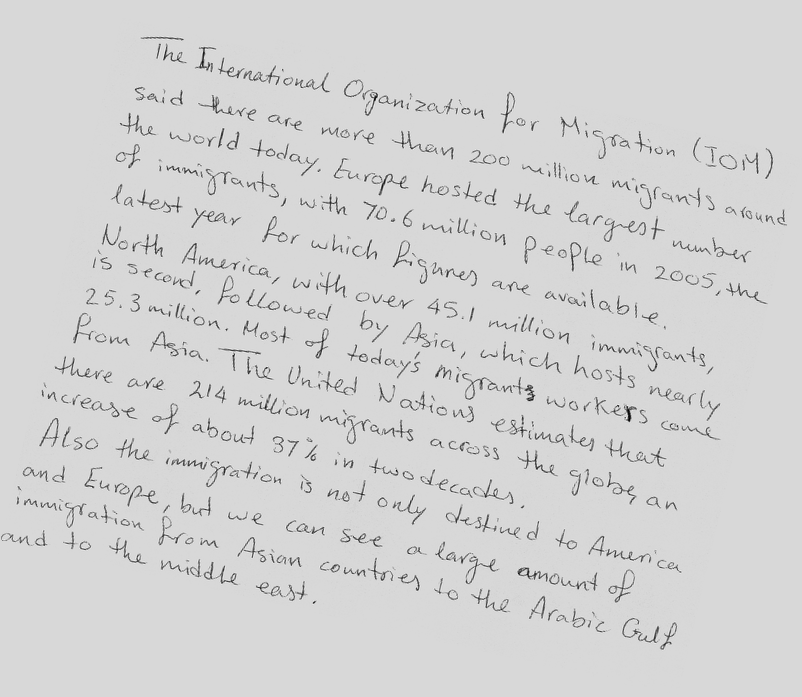 The International Organization for Migration (IOM)
said there are more than 200 million migrants around
the world today. Europe hosted the largest number
of immigrants, with 70.6 million people in 2005, the
latest year for which figures are available.
North America, with over 45.1 million immigrants,
is second, followed by Asia, which hosts nearly
25.3 million. Most of today's migrants workers come
from Asia. The United Nations estimates that
there are 214 million migrants across the globe, an
increase of about 37% in two decades.
Also the immigration is not only destined to America
and Europe, but we can see a large amount of
immigration from Asian countries to the Arabic Gulf
and to the middle east.